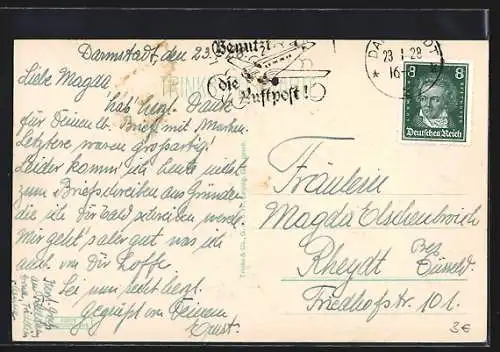 Darmstadt, den 23.
Liebe Magda,
hab' herzl. Dank
für Deinen lb. Brief mit Marken.
Letztere waren großartig!
Leider komm' ich heute nicht
zum Briefschreiben aus Gründen
die ich Dir bald schreiben werde.
Mir geht's aber gut was ich
auch von Dir hoffe.
Sei nun recht herzl.
Gegrüßt von Deinem
Ernst.
Benutzt
die
Luftpost!
DA
23.1.28
* 16
8 8
Deutsches Reich
TRINKS
Trinks & Co., G. Leipzig
Fräulein
Magda Elschenbroich
Rheydt Bez.
Düsseld.
Friedhofstr. 101.
3€